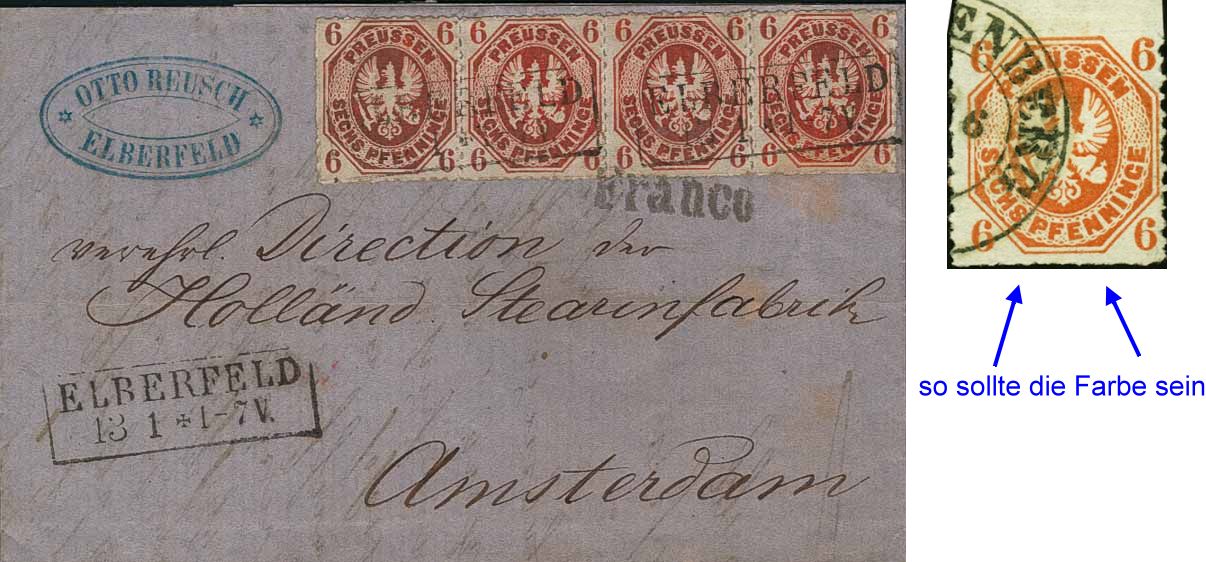 OTTO REUSCH
ELBERFELD
6 6 6 6 6 6 6 6
PREUSSEN PREUSSEN PREUSSEN PREUSSEN
SECHS PFENNINGE SECHS PFENNINGE SECHS PFENNINGE SECHS PFENNINGE
6 6 6 6 6 6 6 6
ELBERFELD
1-7V.
Franco
verehrl. Direction der
Holländ Stearinfabrik
ELBERFELD
13 1 * 1-7V.
Amsterdam
6 6
PREUSSEN
SECHS PFENNINGE
6 6
so sollte die Farbe sein